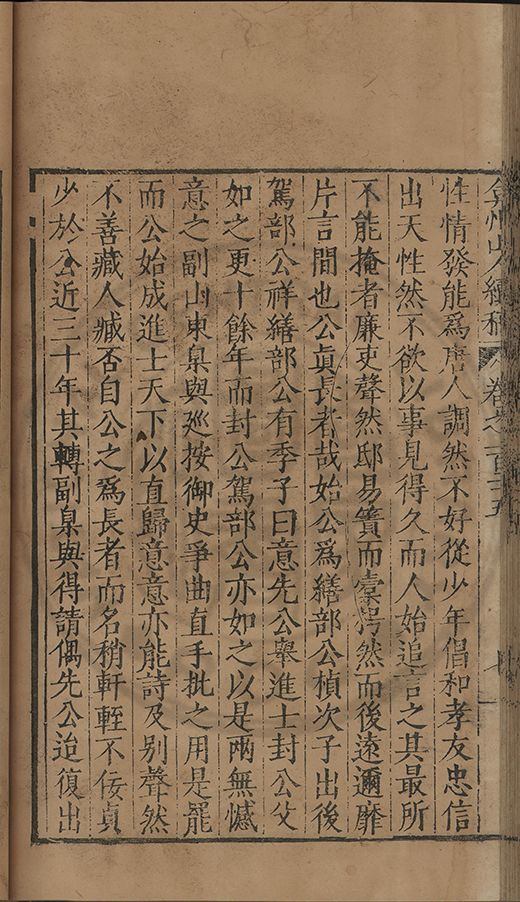 弇州山人續稿 卷之一百三十五
性情發能爲唐人調然不好從少年倡和孝友忠信
出天性然不欲以事見得久而人始追言之其最所
不能掩者廉吏聲然邸易簀而橐枵然而後遠邇靡
片言間也公眞長者哉始公爲繕部公楨次子出後
駕部公祥繕部公有季子曰意先公舉進士封公父
如之更十餘年而封公駕部公亦如之以是兩無憾
意之副山東臬與廵按御史爭曲直手批之用是罷
而公始成進士天下以直歸意意亦能詩及别聲然
不善藏人臧否自公之爲長者而名稍軒輊不佞貞
少於公近三十年其轉副臬與得請偶先公迨復出